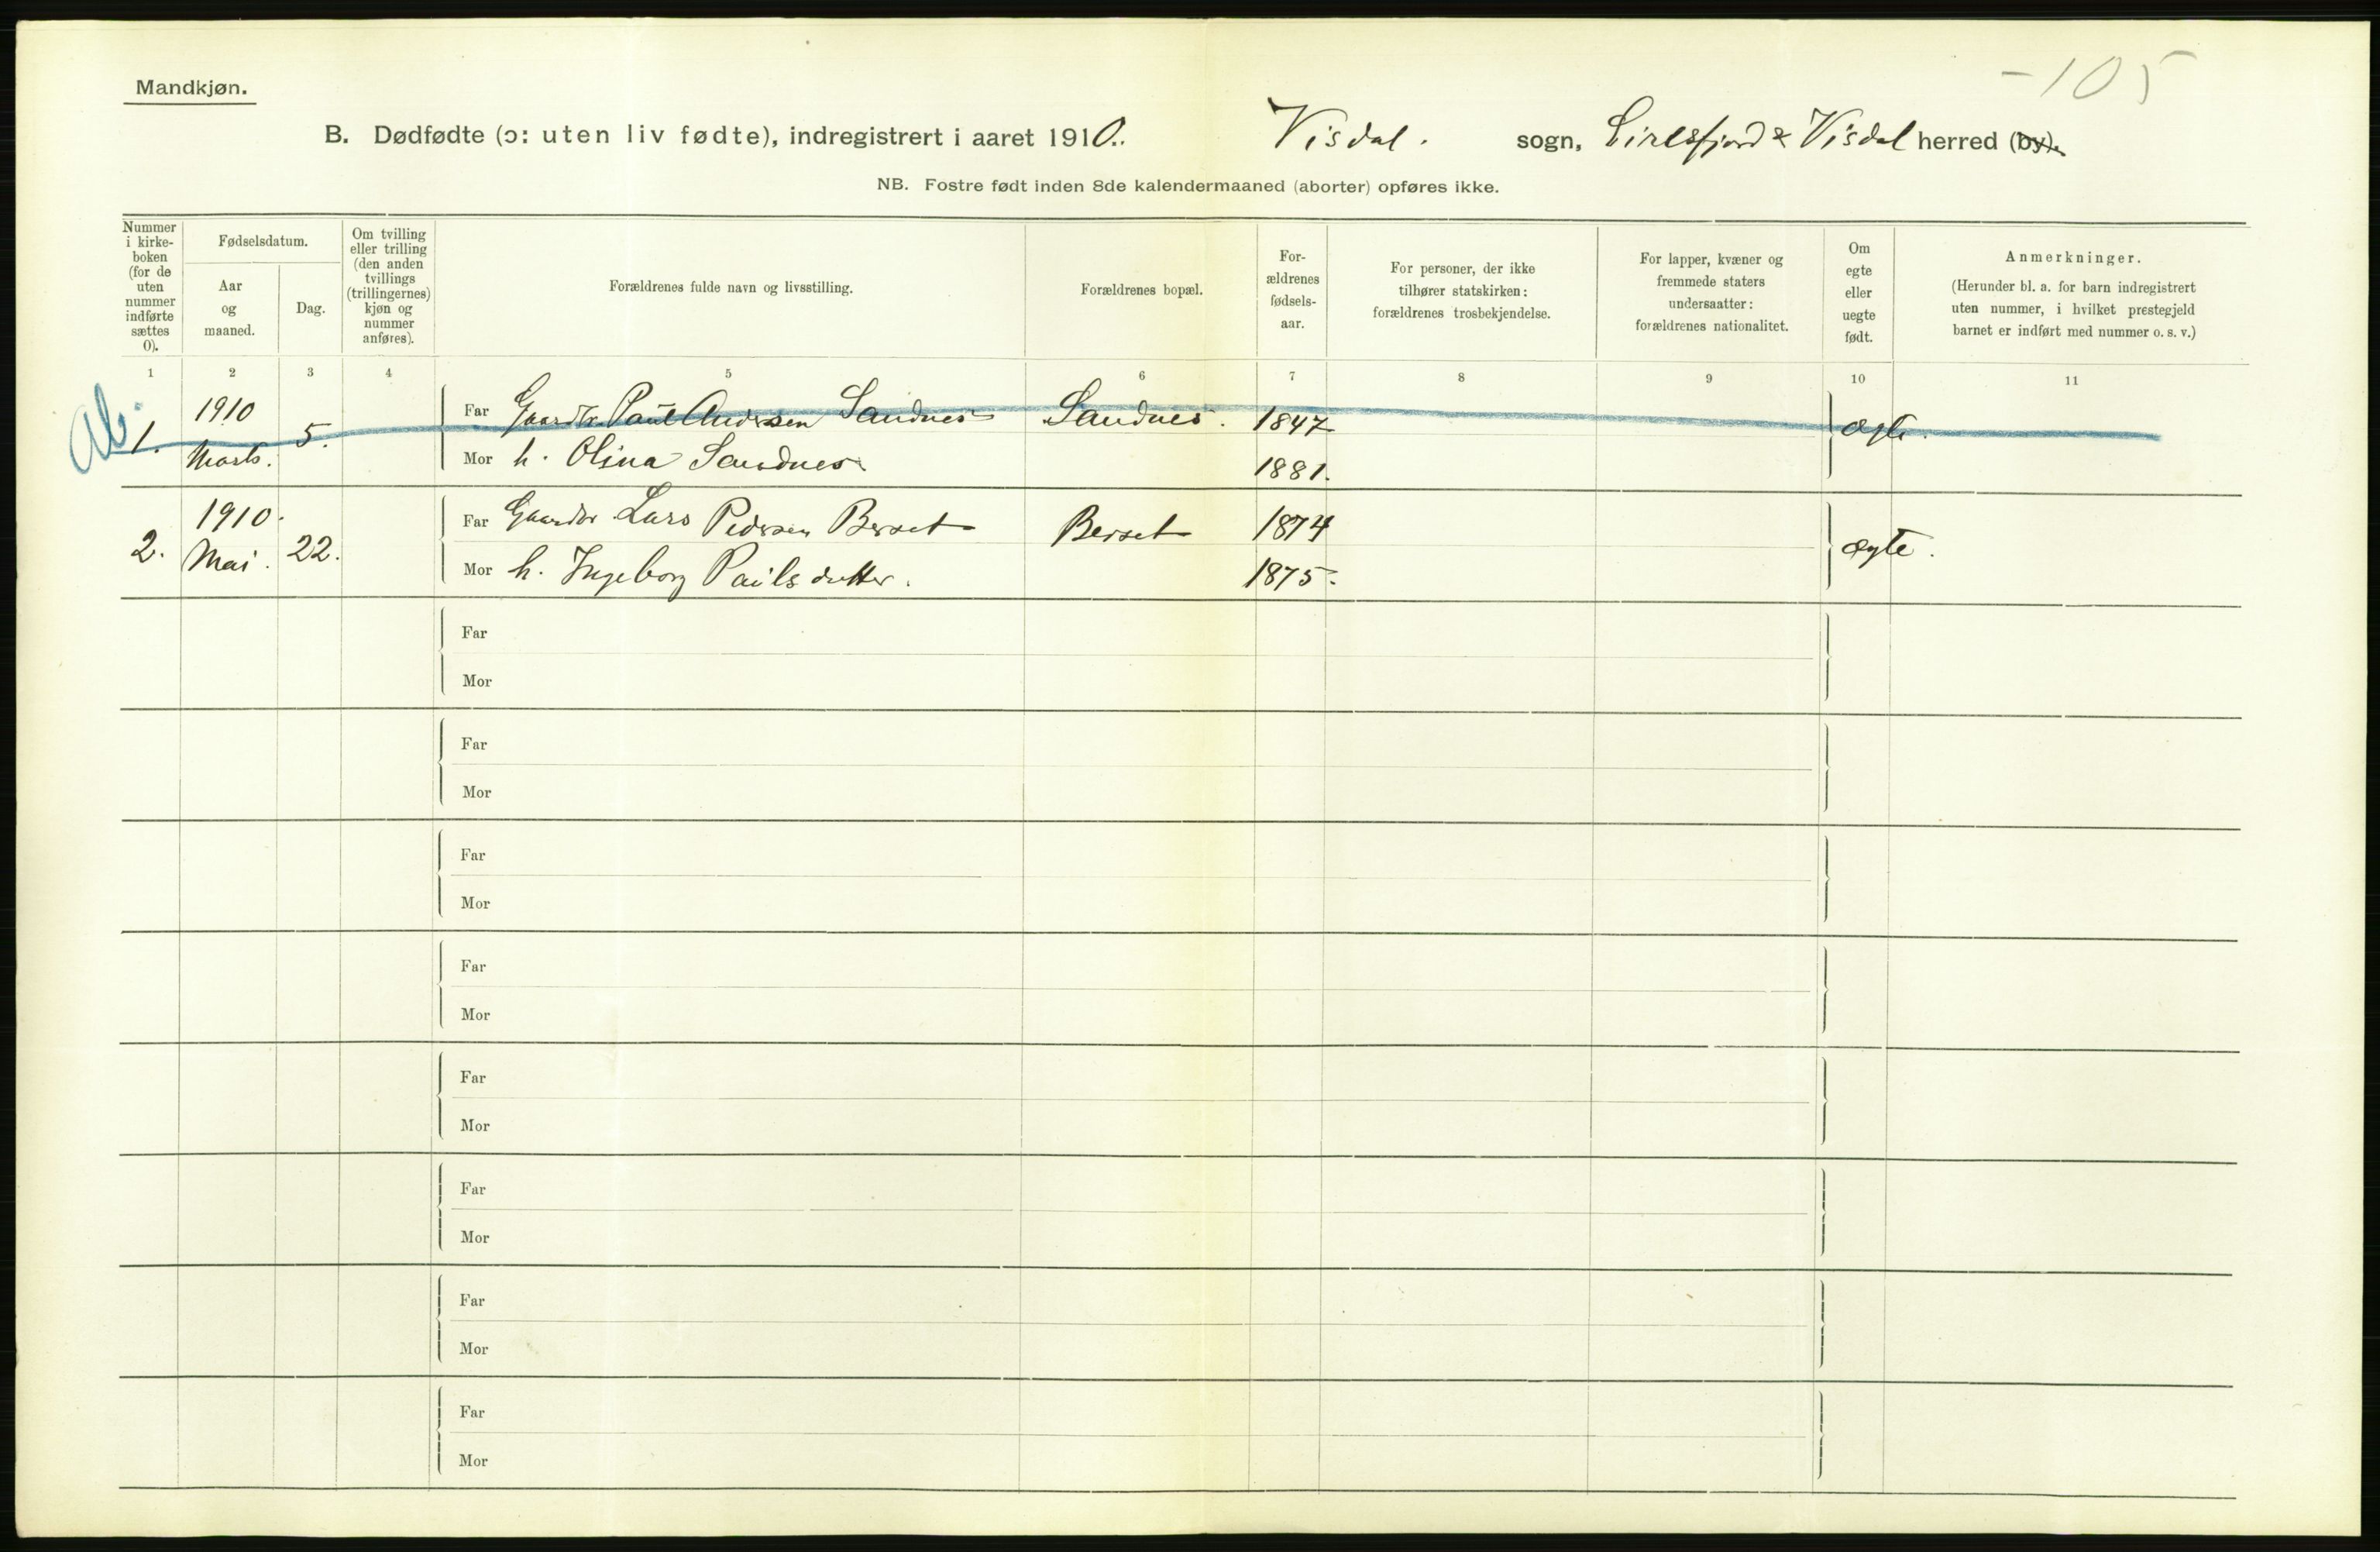 -105
Mandkjøn.
B. Dødfødte (ɔ: uten liv fødte), indregistrert i aaret 1910. Visdal. sogn, Eirlsfjord & Visdal herred (by).
NB. Fostre født inden 8de kalendermaaned (aborter) opføres ikke.
Nummer
i kirke-
boken
(for de
uten
nummer
indførte
sættes
0).
Fødselsdatum.
Aar
og
maaned.
Dag.
Om tvilling
eller trilling
(den anden
tvillings
(trillingernes)
kjøn og
nummer
anføres).
Forældrenes fulde navn og livsstilling.
Forældrenes bopæl.
For-
ældrenes
fødsels-
aar.
For personer, der ikke
tilhører statskirken:
forældrenes trosbekjendelse.
For lapper, kvæner og
fremmede staters
undersaatter:
forældrenes nationalitet.
Om
egte
eller
uegte
født.
Anmerkninger.
(Herunder bl. a. for barn indregistrert
uten nummer, i hvilket prestegjeld
barnet er indført med nummer o. s. v.)
1 2 3 4 5 6 7 8 9 10 11
Ab.
1. 1910 Marts. 5. Far Gaardbr. Paul Andersen Sandnes Sandnes. 1847 ægte.
Mor h. Olina Sandnes 1881.
2. 1910. Mai. 22. Far Gaardbr Lars Pedersen Berset Berset 1874 ægte.
Mor h. Ingeborg Paulsdatter. 1875.
Far
Mor
Far
Mor
Far
Mor
Far
Mor
Far
Mor
Far
Mor
Far
Mor
Far
Mor